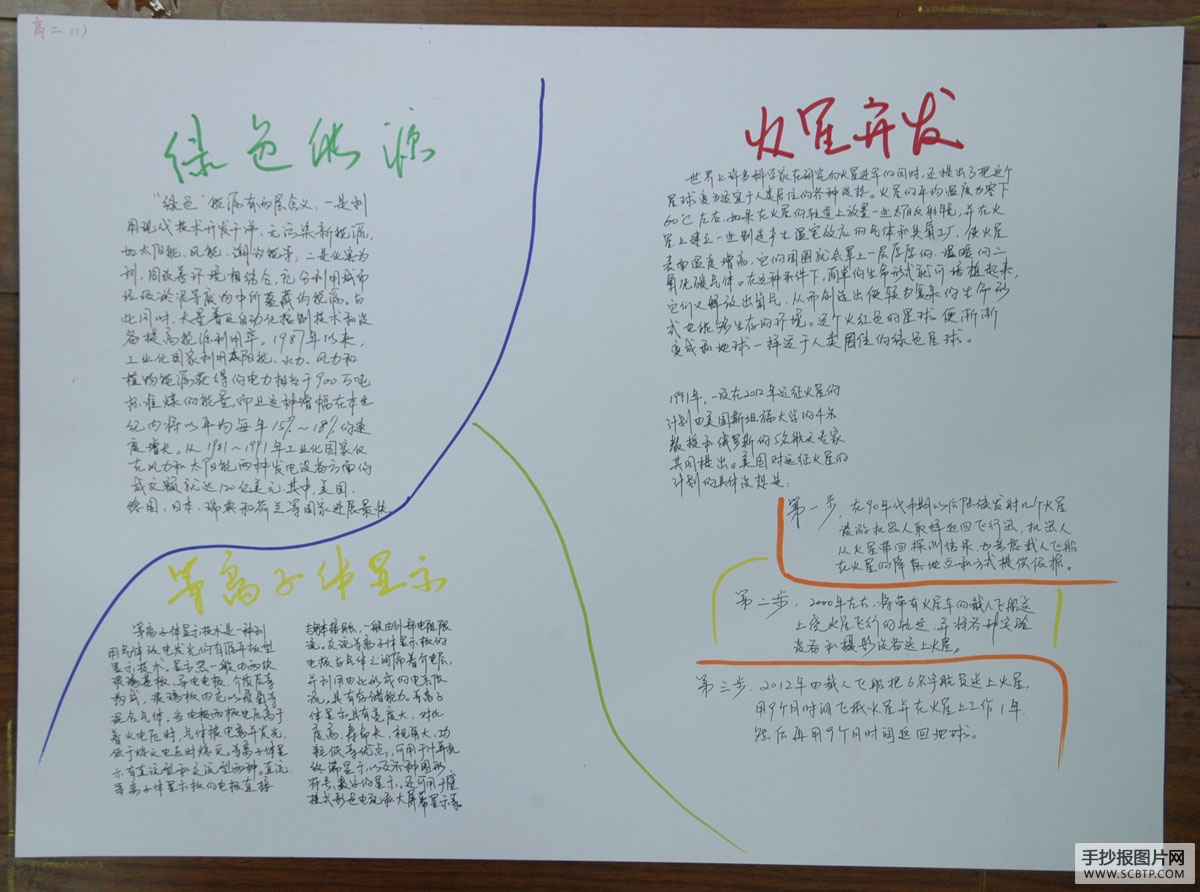 高二(1)
绿色能源
"绿色"能源有两层含义：一是利
用现代技术开发干净、无污染新能源，
如太阳能、风能、潮汐能等；二是化害为
利，同改善环境相结合，充分利用城市
垃圾淤泥等废物中所蕴藏的能源。与
此同时，大量普及自动化控制技术和设
备提高能源利用率。1987年以来，
工业化国家利用太阳能、水力、风力和
植物能源获得的电力相当于900万吨
标准煤的能量，而且这种增幅在本世
纪内将以年均每年15%～18%的速
度增长。从1981～1991年工业化国家仅
在风力和太阳能两种发电设备方面的
成交额就达120亿美元，其中，美国、
德国、日本、瑞典和荷兰等国家进展最快。
等离子体显示
等离子体显示技术是一种利
用气体放电发光的有源平板型
显示技术。显示器一般由两块
玻璃基板、导电电极、介质层等
构成，玻璃板内充以氖氩等
混合气体。当电极两板电压高于
着火电压时，气体被电离并发光，
低于熄灭电压时熄灭。等离子体显
示有直流型和交流型两种。直流
等离子体显示板的电极直接
与气体接触，一般由外部电阻限
流。交流等离子体显示板的
电极与气体之间隔着介电层，
并利用由此形成的电容限
流。具有存储能力。等离子
体显示具有亮度大、对比
度高、寿命长、视角大、功
耗低等优点，可用于计算机
终端显示，以及各种图形、
符号、数字的显示，还可用于壁
挂式彩色电视和大屏幕显示等。
火星开发
世界上许多科学家在研究向火星进军的同时，还提出了把这个
星球变为适宜于人类居住的各种设想。火星的年均温度为零下
60℃左右，如果在火星的轨道上放置一些太阳反射镜，并在火
星上建立一些制造产生温室效应的气体和臭氧工厂，使火星
表面温度增高，它的周围就会罩上一层厚厚的、温暖的二
氧化碳气体。在这种条件下，简单的生命形式就可培植起来，
它们又释放出氧气，从而创造出使较为复杂的生命形
式也能够生存的环境。这个火红色的星球便渐渐
变成和地球一样适于人类居住的绿色星球。
1991年，一项在2012年远征火星的
计划由美国斯坦福大学的4名
教授和俄罗斯的5名航天专家
共同提出。美国对远征火星的
计划的具体设想是：
第一步，在90年代中期以后陆续发射几个火星
漫游机器人取样返回飞行器，机器人
从火星带回探测结果，为考虑载人飞船
在火星的降落地点和方式提供依据。
第二步，2000年左右，将带有火星车的载人飞船送
上绕火星飞行的轨道，并将各种实验
设备和摄影设备送上火星。
第三步，2012年由载人飞船把6名宇航员送上火星，
用9个月时间飞抵火星并在火星上工作1年，
然后再用9个月时间返回地球。
手抄报图片网
WWW.SCBTP.COM